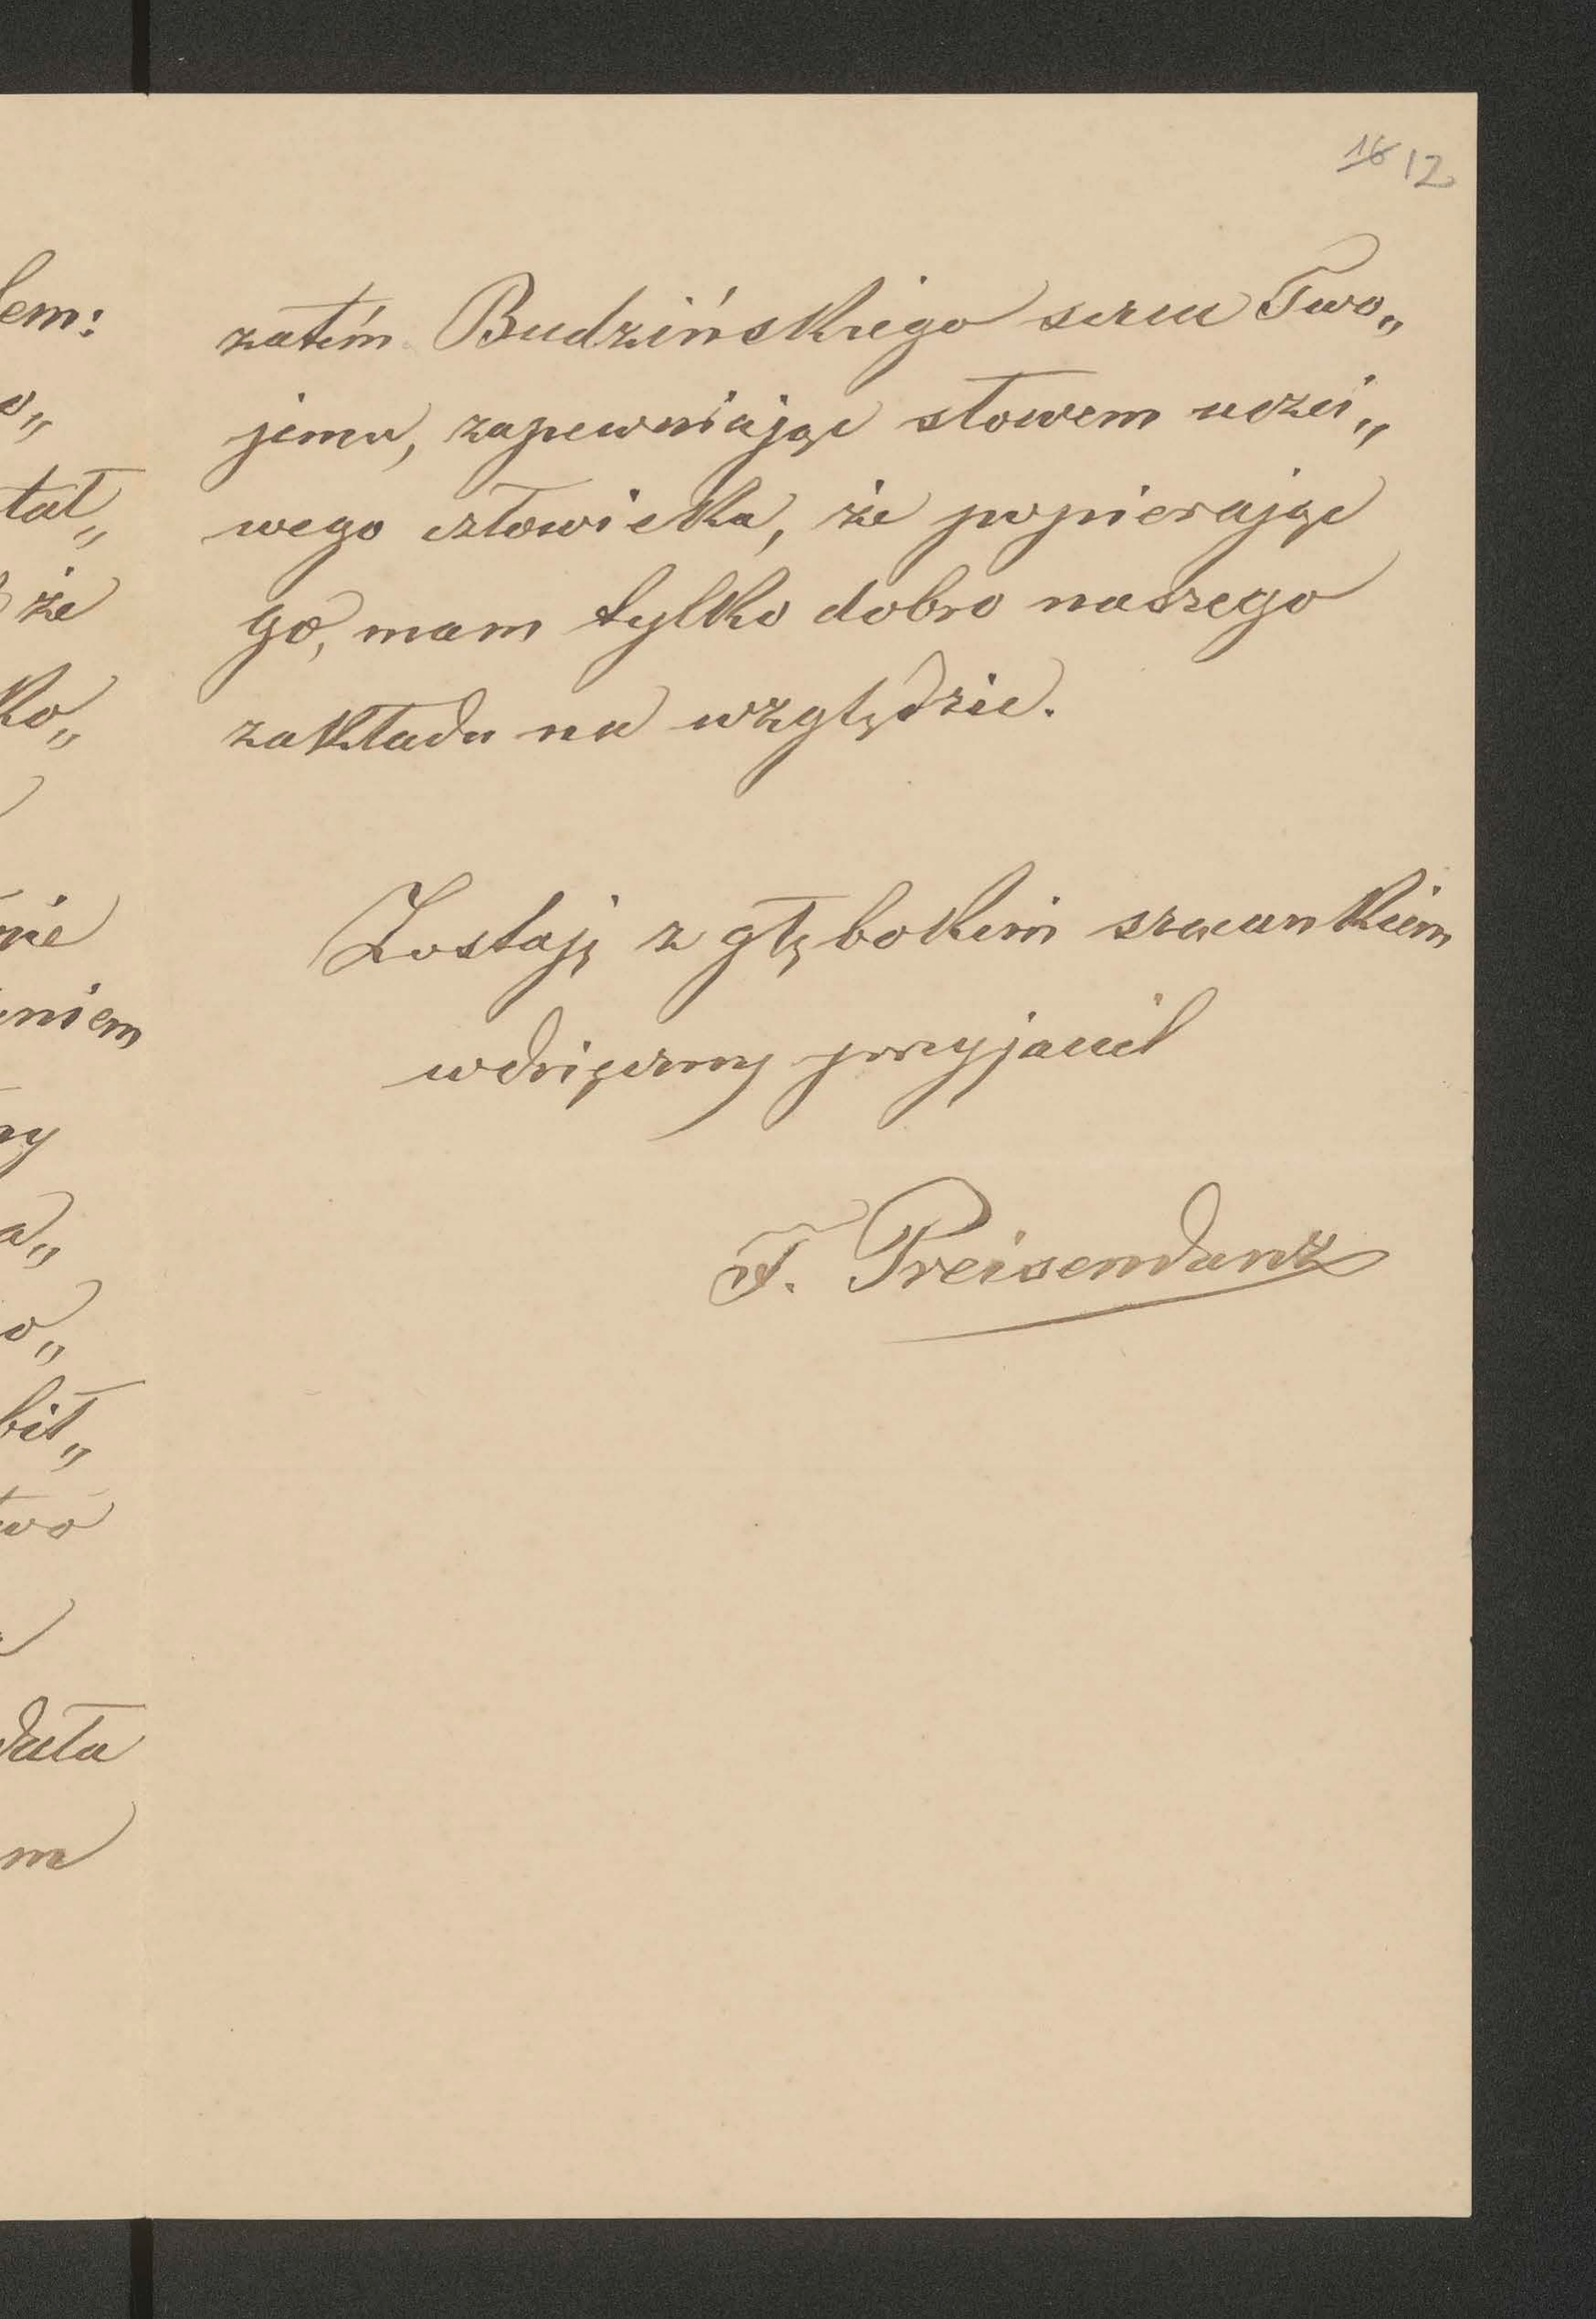 16 12
zatém Budzińskiego sercu Two„
jemu, zapewniając słowem uczci„
wego człowieka, że popierając
go, mam tylko dobro naszego
zakładu na względzie.
Zostaję z głębokim szacunkiem
wdzięczny przyjaciel
F. Preisendanz
lem:
o„
tał„
że
ko„
nie
niem
ny
a„
o„
bit„
two
dała
m